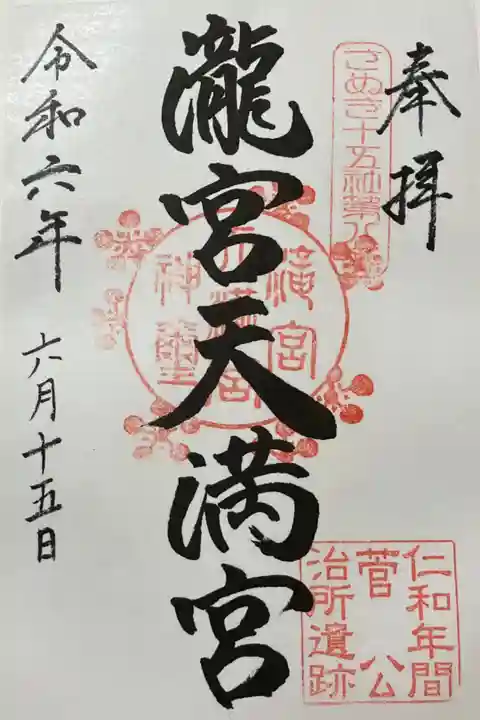 奉拝
さぬき十五社第八
瀧宮天満宮
滝宮
天満宮
神璽
仁和年間
菅公
治所遺跡
令和六年
六月十五日